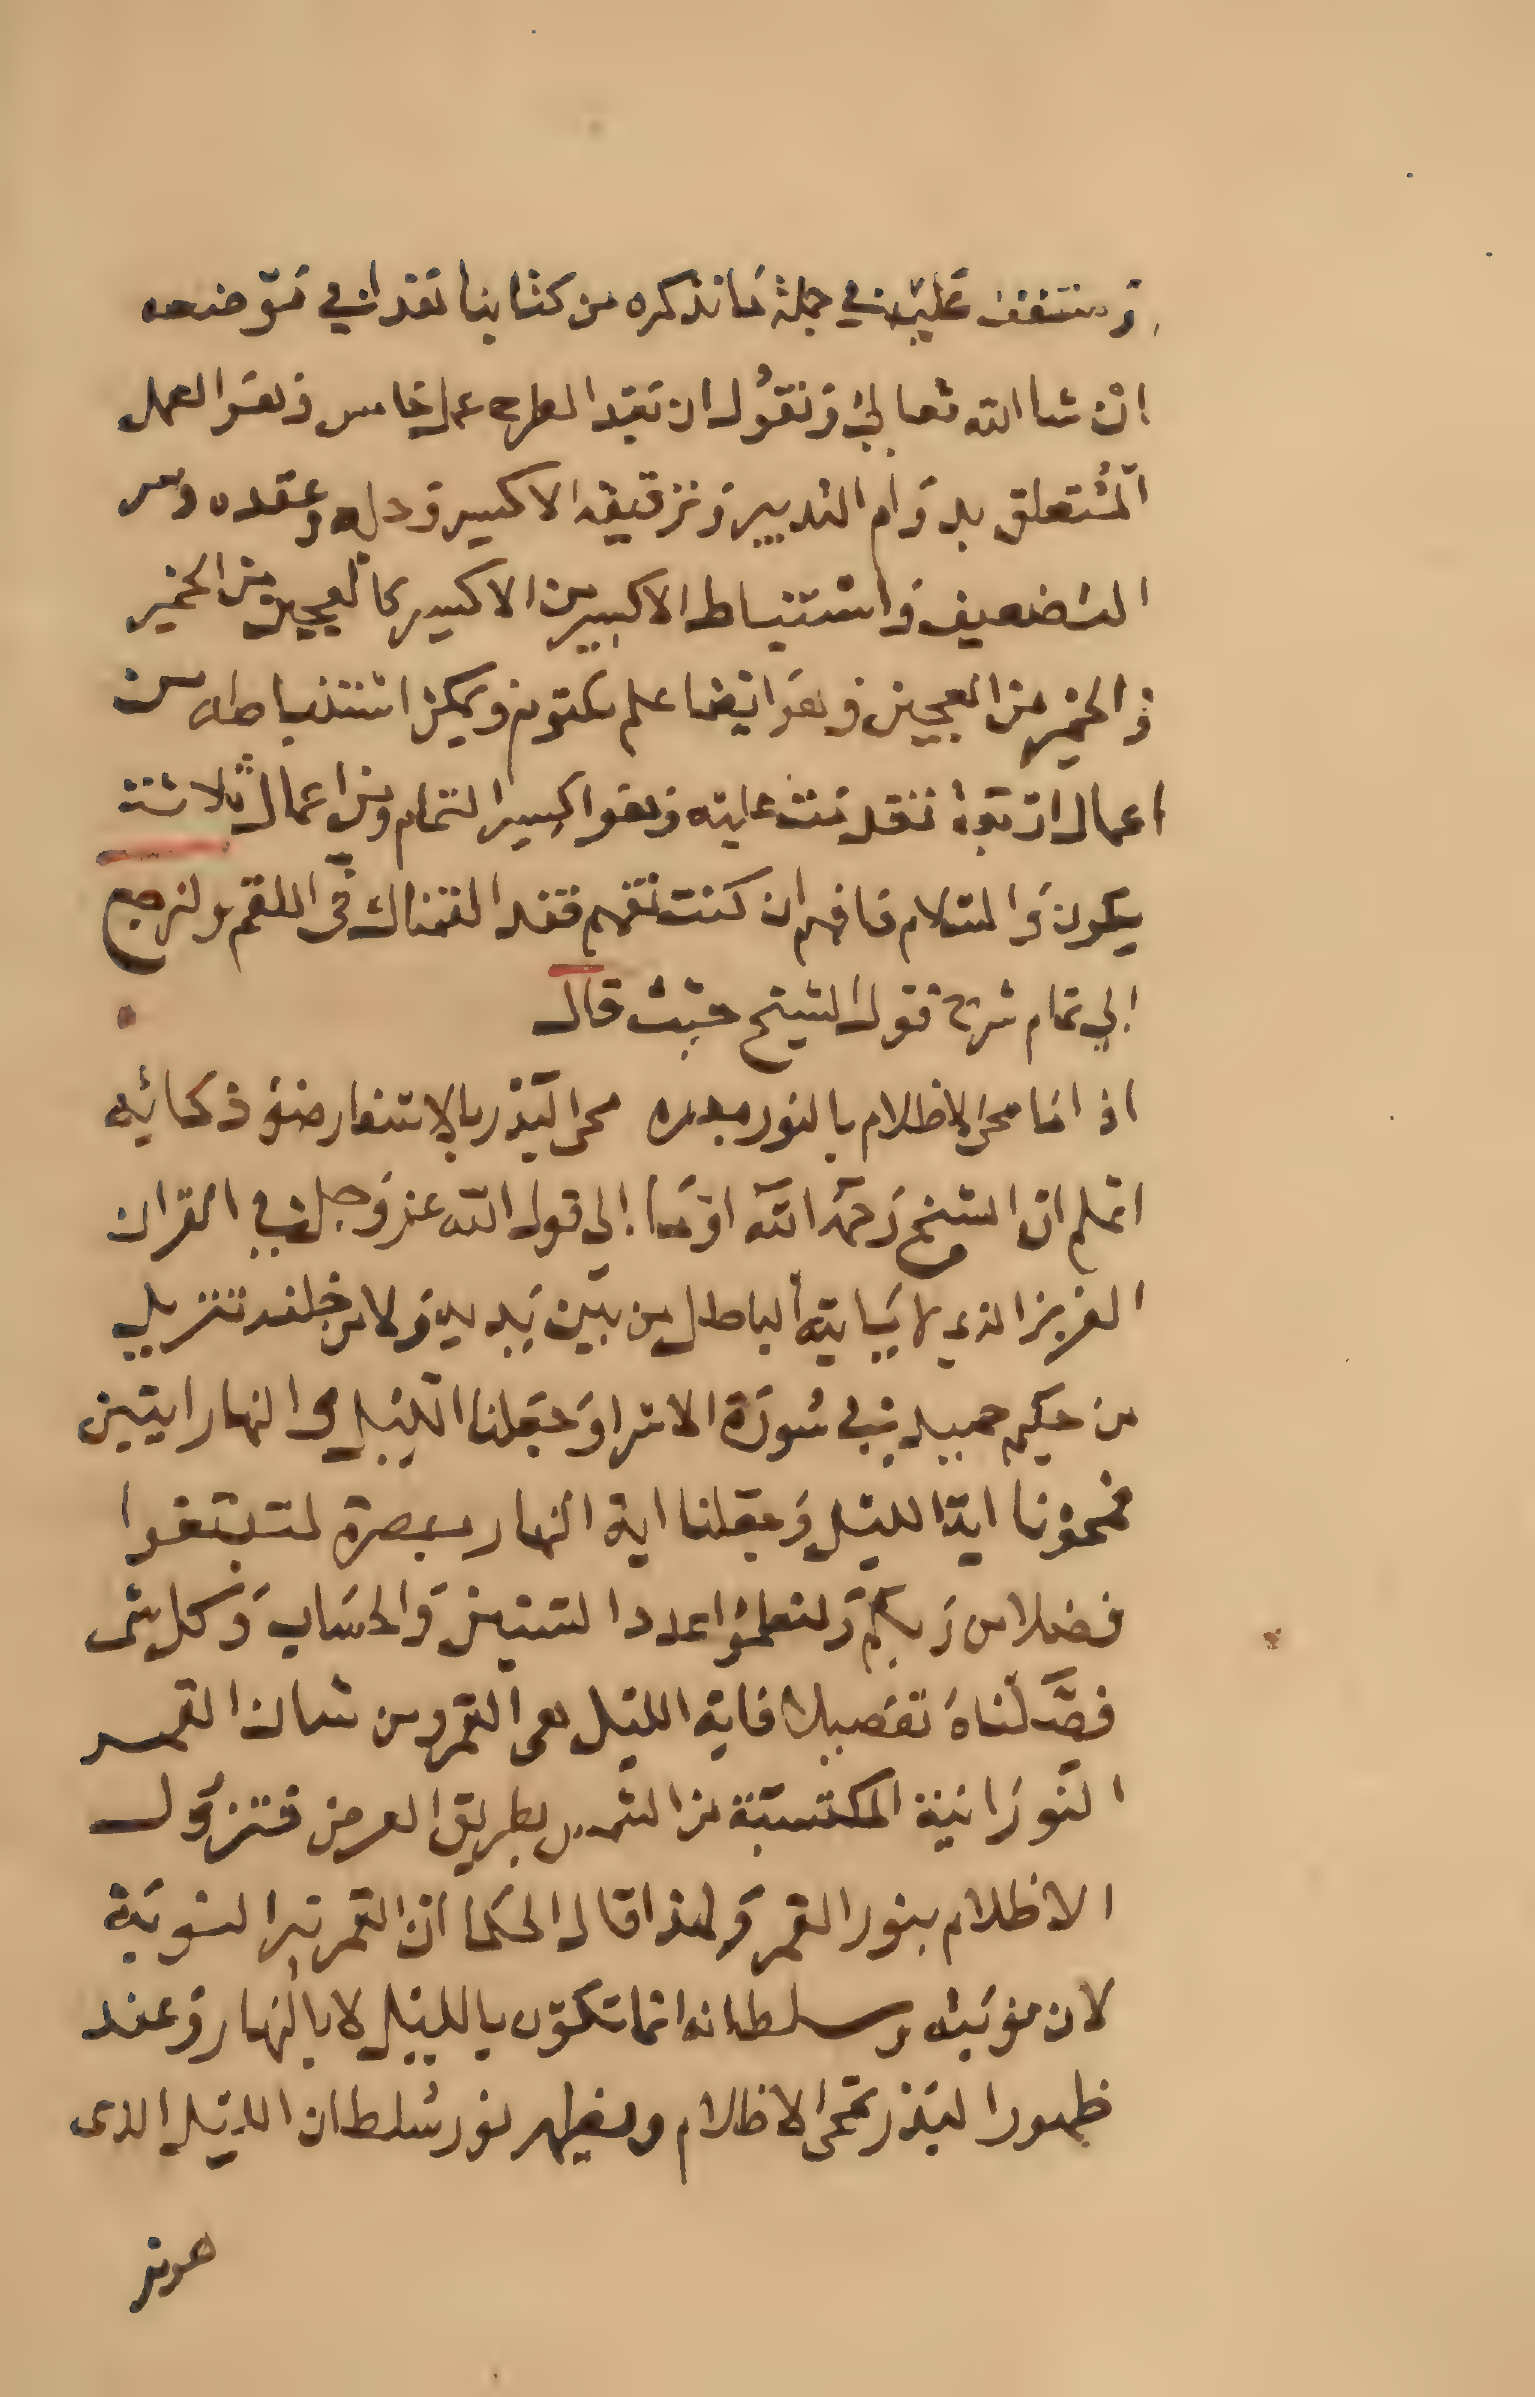 وستقف عليه في جملة ما نذكره من كتابنا هذا في موضعه
ان شا الله تعالى ونقول ان بعد الطرح عمل خامس وهو العمل
المتعلق بدوام التدبير وترقيق الاكسير وحله وعقده وسر
التضعيف واستنباط الاكسير من الاكسير كالعجين من الخمير
والخمير من العجين وهو ايضا علم مكتوم ويمكن استنباطه من
اعمال اربعة تقدمت عليه وهو اكسير التمام ومن اعمال ثلاثة
يكون والسلام فافهم ان كنت تفهم فقد القمناك في اللقم ولنرجع
الي تمام شرح قول الشيخ حيث قال
اذا ما محى الاظلام بالنور بدره محى البدر بالاسفار ضوء ذكائه
اعلم ان الشيخ رحمه الله اومأ الى قول الله عز وجل في القران
العزيز الذي لا ياتيه الباطل من بين يديه ولا من خلفه تنزيل
من حكيم حميد في سورة الاسرا وجعلنا الليل والنهار ايتين
فمحونا اية الليل وجعلنا اية النهار مبصرة لتبتغوا
فضلا من ربكم ولتعلموا عدد السنين والحساب وكل شى
فصلناه تفصيلا فاية الليل هى القمر ومن شان القمر
النورانية المكتسبة من الشمس بطريق العرض فتزول
الاظلام بنور القمر ولهذا قال الحكما ان القمر نير النوبة
لان نوبته وسلطانه انما تكون بالليل لا بالنهار وعند
ظهور البدر تمحى الاظلام ويظهر نور سلطان الليل الذى